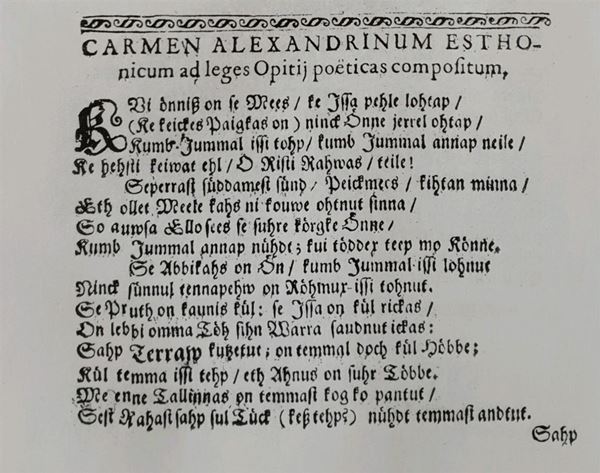 CARMEN ALEXANDRINUM ESTHO-
nicum ad leges Opitij poëticas compositum,
KVi önniß on se Mees / ke Issa pehle lohtap /
(Ke keickes Paigkas on) ninck Önne jerrel ohtap /
Kumb-Jummal issi tohp / kumb Jummal annap neile /
Ke hehsti keiwat ehl / O Risti Rahwas / teile!
Seperrast süddamest sünd / Peickmees / kihtan minna /
Eth ollet Meele kahs ni kouwe ohtnut sinna /
So auwsa Ellosees se suhre körgke Önne /
Kumb Jummal annap nühdt; kui töddex teep mo Könne.
Se Abbikahs on Ön / kumb Jummal issi lohnut
Ninck sünnul tennapehw on Röhmux issi tohnut.
Se Pruth on kaunis kül: se Issa on kül rickas /
On lebbi omma Töh sihn Warra saudnut ickas:
Sahp Terraw kutzetut; on temmal doch kül Höbbe;
Kül temma issi tehp / eth Ahnus on suhr Többe.
Me enne Tallinnas on temmast kog ko pantut /
Sest Rahast sahp sul Tück (keß tehp?) nühdt temmast andtut.
Sahp